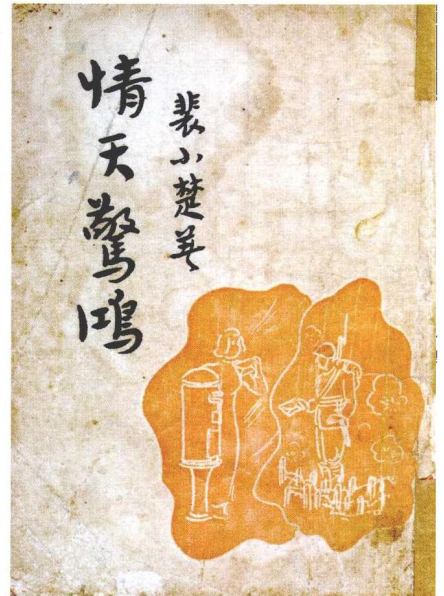 情天驚鳴
裴小楚著